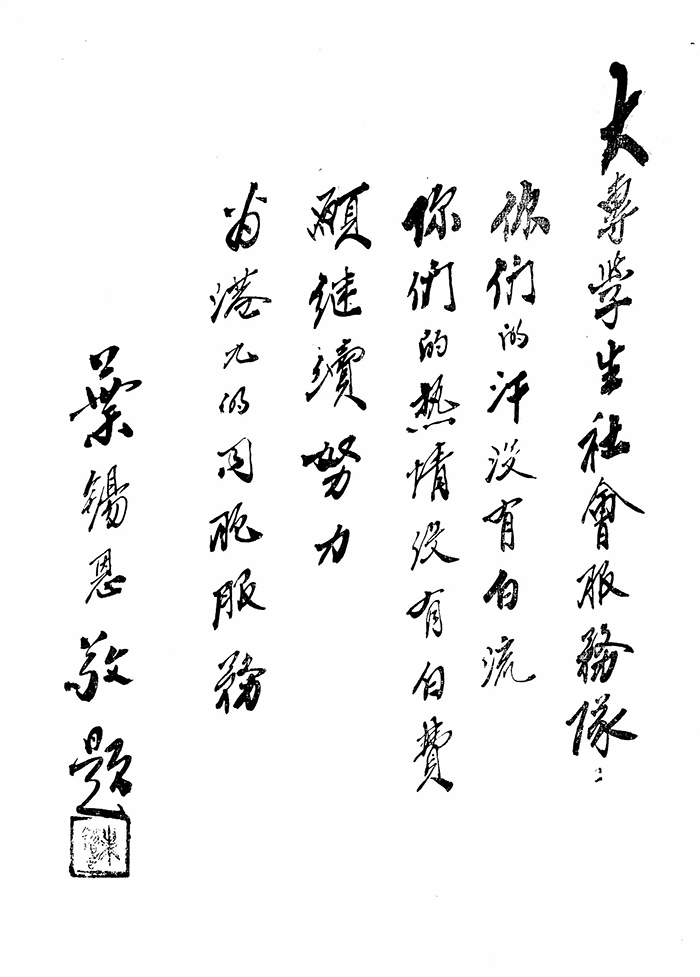 大專學生社會服務隊：
你們的汗没有白流
你們的热情没有白费
願继續努力
为港九的同胞服務
葉錫恩敬題